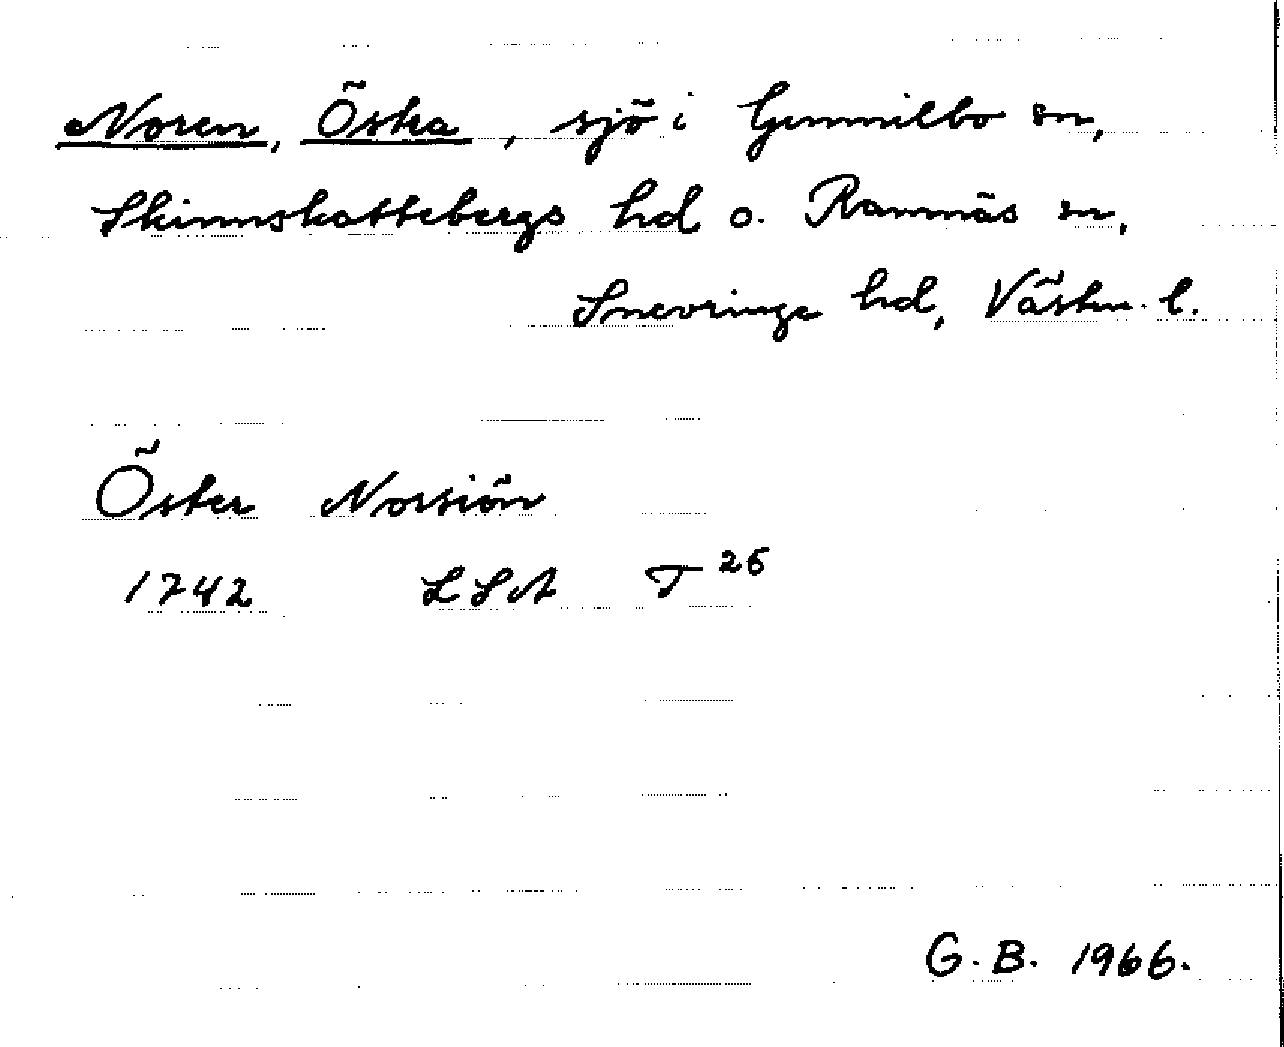 Noren, Östra, sjö i Gunnilbo sn,
Skinnskattebergs hd o. Ramnäs sn,
Snevringe hd, Västm. l.
Öster Norsiön
1742 LSA T 26
G. B. 1966.